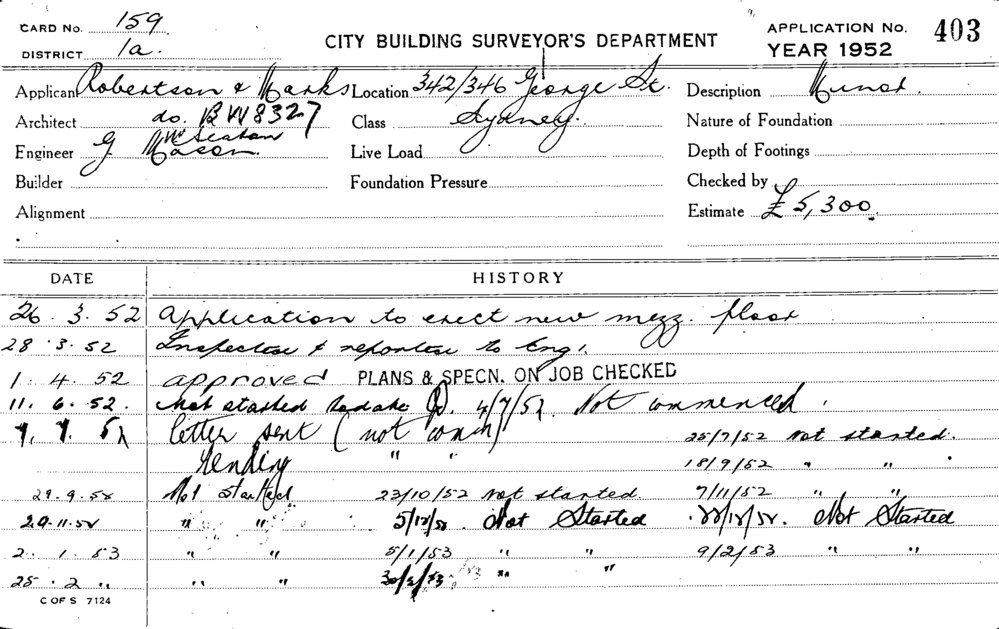 CARD No. 159
DISTRICT 1a.
CITY BUILDING SURVEYOR'S DEPARTMENT
APPLICATION No. 403
YEAR 1952
Applicant Robertson & Marks Location 342/346 George St. Description Minor.
Architect do. BW8327 Class Sydney. Nature of Foundation
Engineer G Mason. Live Load Depth of Footings
Builder Foundation Pressure Checked by
Alignment Estimate £5,300.
DATE HISTORY
26. 3. 52 Application to erect new mezz. floor
28. 3. 52 Inspection & reported to Eng.
1. 4. 52 approved PLANS & SPECN. ON JOB CHECKED
11. 6. 52. Not started 4/7/52. Not commenced.
7. 7. 52 letter sent (not comm) 25/7/52 not started.
Pending " " 18/9/52 " "
29.9.52 Not started 23/10/52 not started 7/11/52 " "
20.11.52 " " 5/12/52. Not Started 22/12/52. Not Started
2. 1. 53 " " 5/1/53 " " 9/2/53 " "
25. 2 " " " " "
C OF S 7124